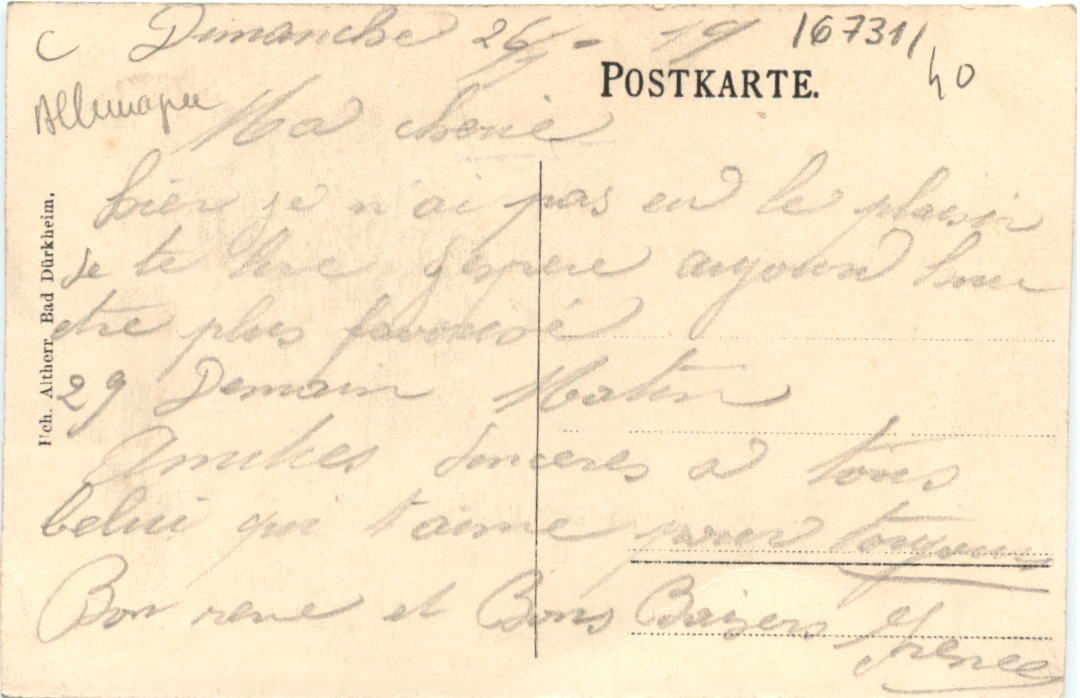 C Dimanche 26/1 - 19 167311/40
POSTKARTE.
Allemagne
Ma cherie
hier je n'ai pas eu le plaisir
de te lire j'espere aujourd'hui
etre plus favorisé
29 Demain Matin
Amities sinceres a tous
Celui qui t'aime pour toujours
Bon reve et Bons Baizers
Hch. Altherr, Bad Dürkheim.